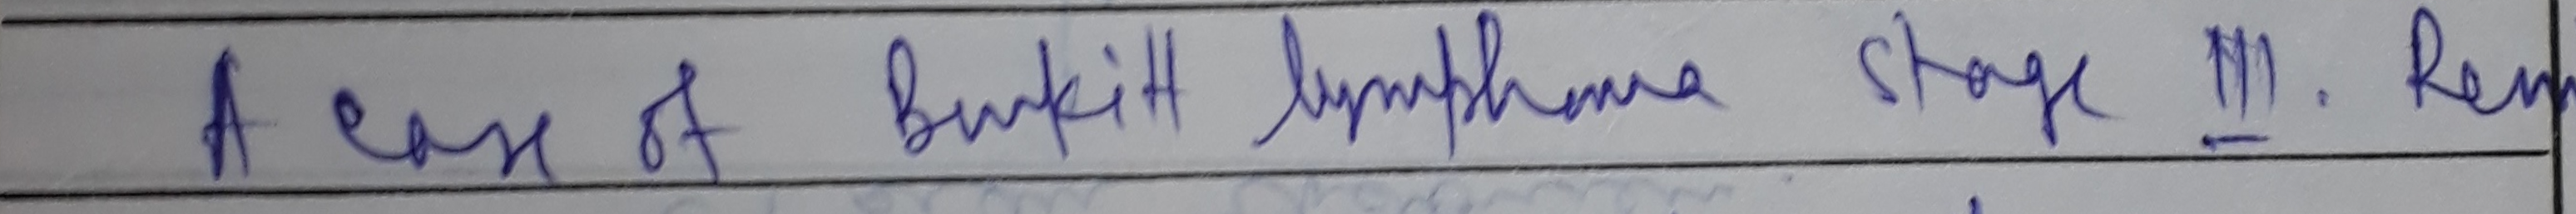 A case of Burkitt lymphoma stage III. Rem